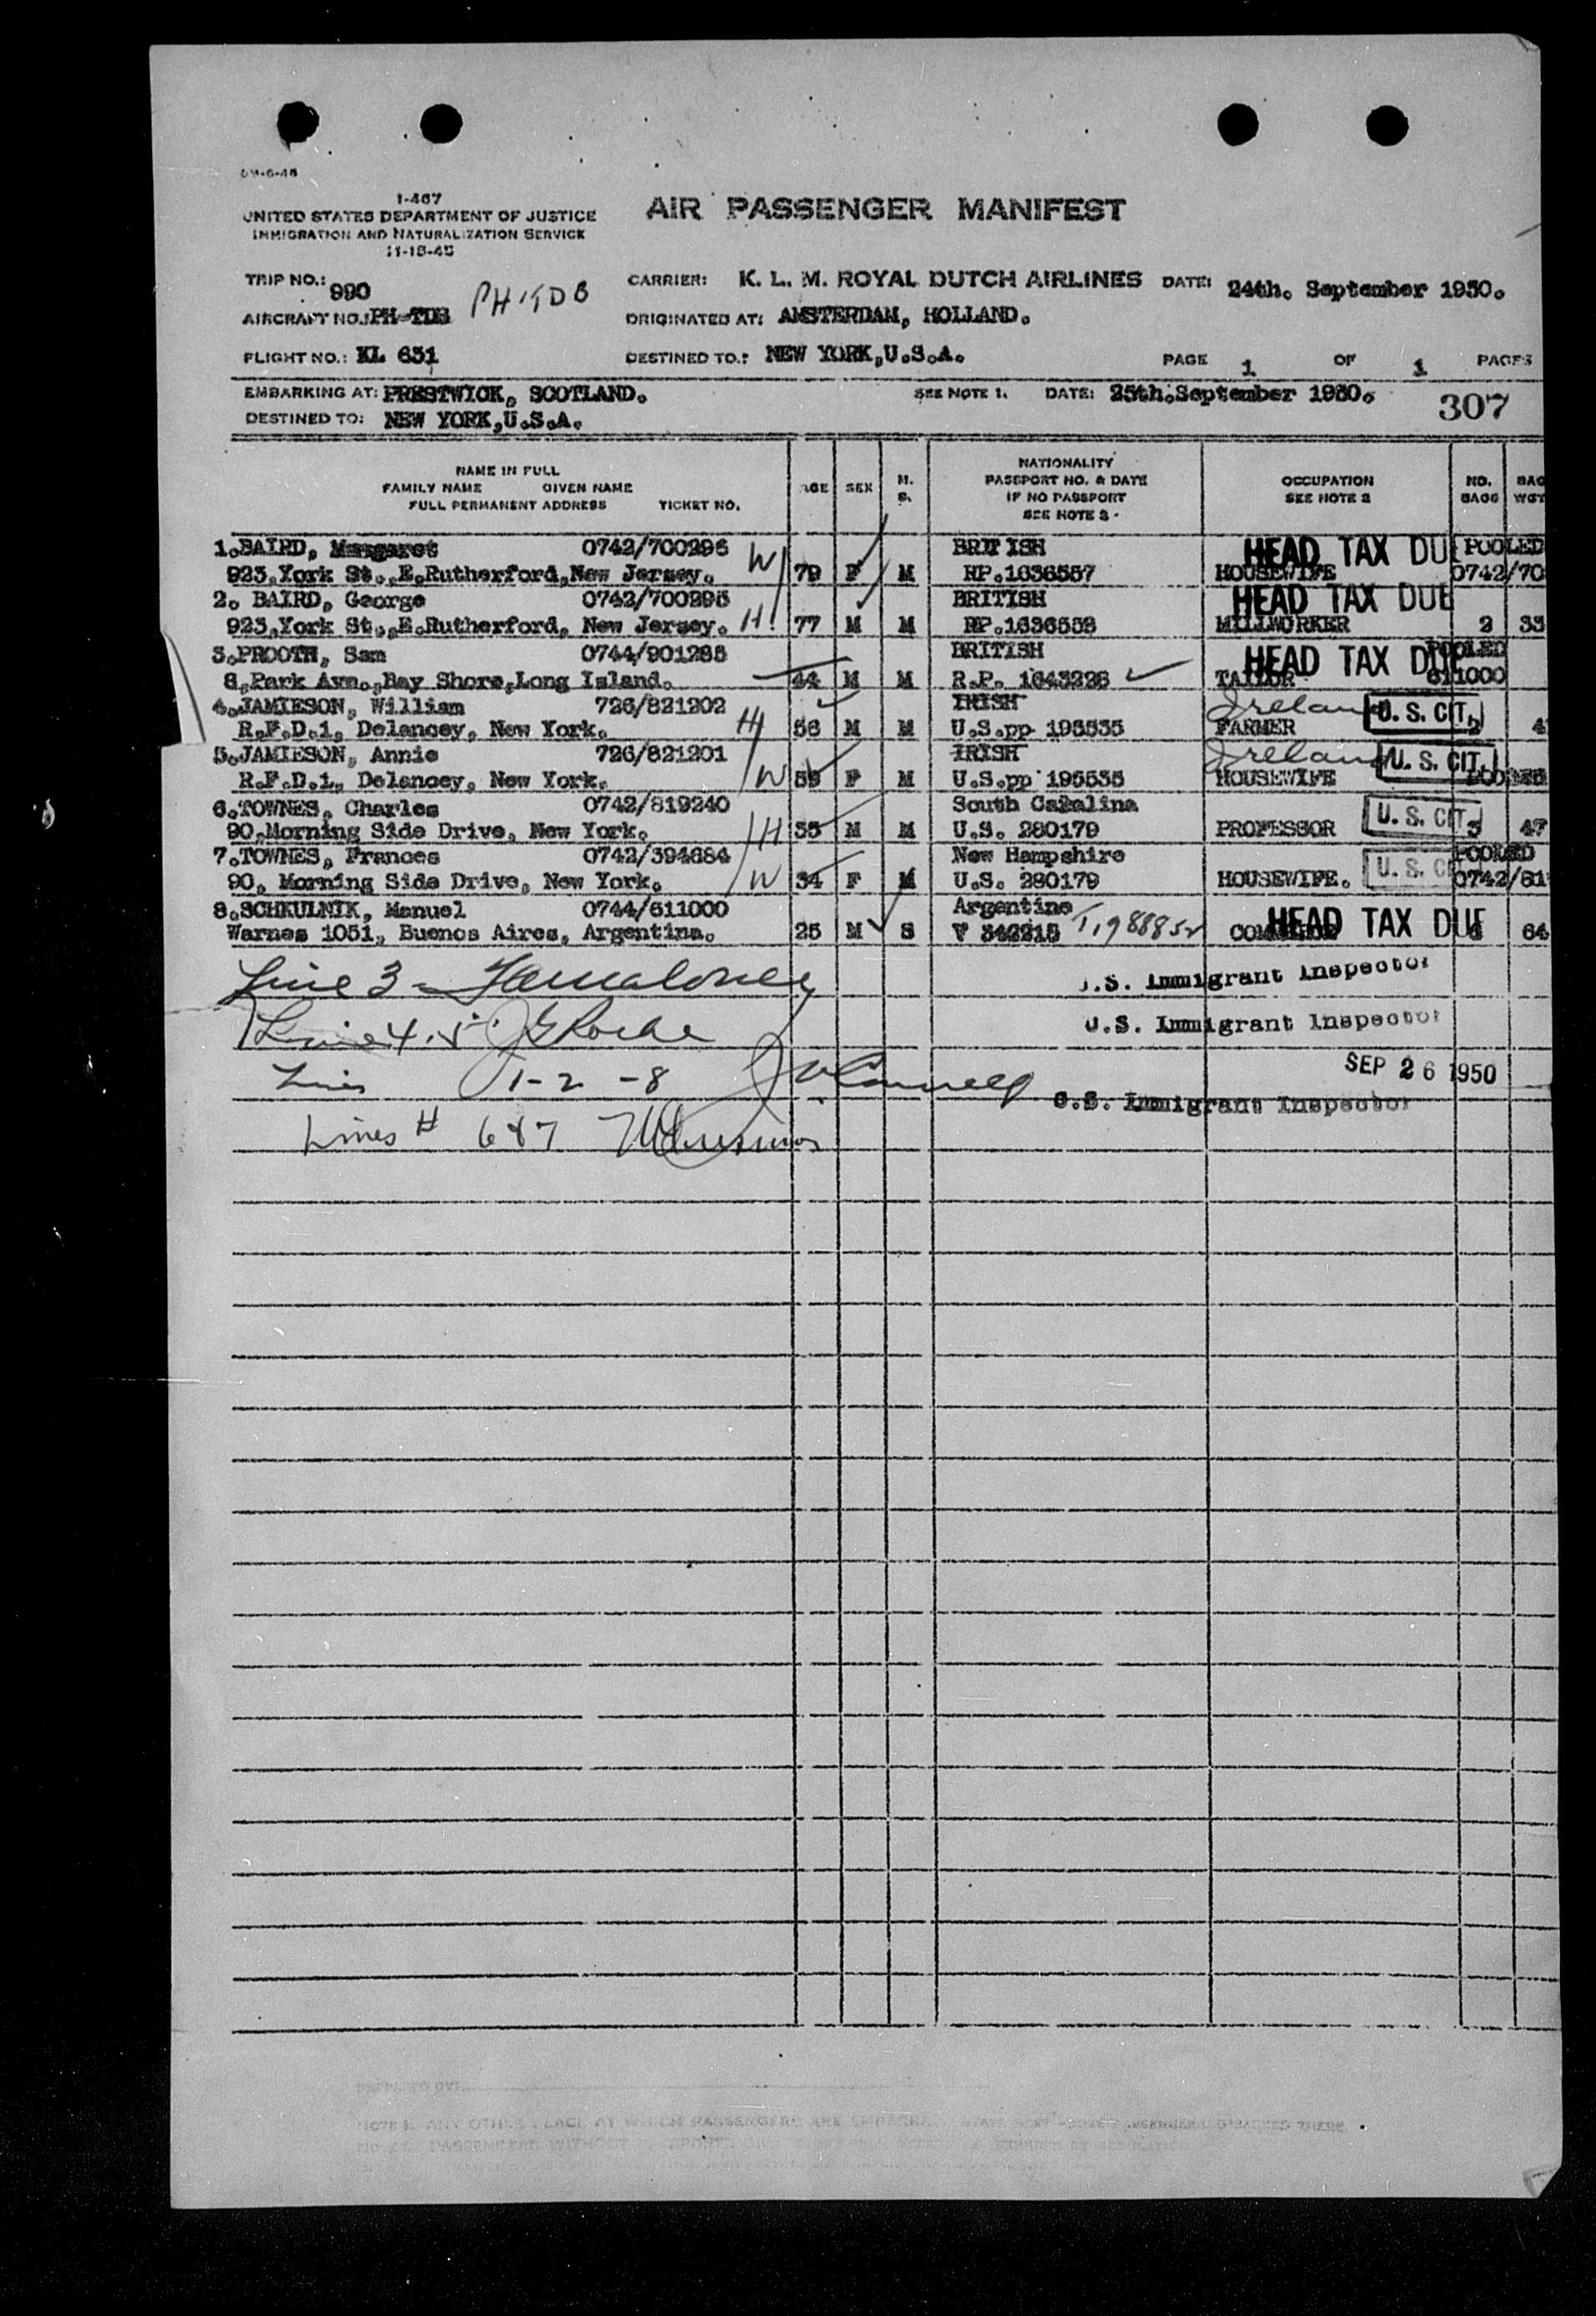 I-467
UNITED STATES DEPARTMENT OF JUSTICE
IMMIGRATION AND NATURALIZATION SERVICE
11-15-45
AIR PASSENGER MANIFEST
TRIP NO.: 990
CARRIER: K. L. M. ROYAL DUTCH AIRLINES DATE: 24th. September 1950.
AIRCRAFT NO.: PH-TDB PH-TDB
ORIGINATED AT: AMSTERDAM, HOLLAND.
FLIGHT NO.: KL 631
DESTINED TO.: NEW YORK,U.S.A.
PAGE 1 OF 1 PAGES
EMBARKING AT: PRESTWICK, SCOTLAND. SEE NOTE 1. DATE: 25th.September 1950.
307
DESTINED TO: NEW YORK,U.S.A.
NAME IN FULL
FAMILY NAME GIVEN NAME
FULL PERMANENT ADDRESS TICKET NO.
AGE SEX M. S.
NATIONALITY
PASSPORT NO. & DATE
IF NO PASSPORT
SEE NOTE 3
OCCUPATION
SEE NOTE 2
NO. BAGS BAG WGT
1.BAIRD, Margaret 0742/700296 W BRITISH HEAD TAX DUE POOLED
923,York St.,E.Rutherford,New Jersey. 79 F M RP.1636557 HOUSEWIFE 0742/70
2. BAIRD, George 0742/700295 BRITISH HEAD TAX DUE
923,York St.,E.Rutherford, New Jersey. H 77 M M RP.1636558 MILLWORKER 2 33
3.PROOTH, Sam 0744/901285 BRITISH HEAD TAX DUE POOLED
8,Park Ave.,Bay Shore,Long Island. 44 M M R.P. 1643228 TAILOR 611000
4.JAMIESON, William 726/821202 IRISH Ireland U. S. CIT.
R.F.D.1, Delancey, New York. H 56 M M U.S.pp 195535 FARMER 4
5.JAMIESON, Annie 726/821201 IRISH Ireland U. S. CIT.
R.F.D.1, Delancey, New York. W 59 F M U.S.pp 195535 HOUSEWIFE
6.TOWNES, Charles 0742/819240 South Carolina U. S. CIT.
90,Morning Side Drive, New York. H 35 M M U.S. 280179 PROFESSOR 3 47
7.TOWNES, Frances 0742/394684 New Hampshire U. S. CI POOLED
90, Morning Side Drive, New York. W 34 F M U.S. 280179 HOUSEWIFE. 0742/81
8.SCHKULNIK, Manuel 0744/611000 Argentine HEAD TAX DUE
Warnes 1051, Buenos Aires, Argentina. 25 M S V 342215 64
Line 3 -
U.S. Immigrant Inspector
Line 4.5
U.S. Immigrant Inspector
Lines 1-2-8
SEP 26 1950
U.S. Immigrant Inspector
Lines # 6&7